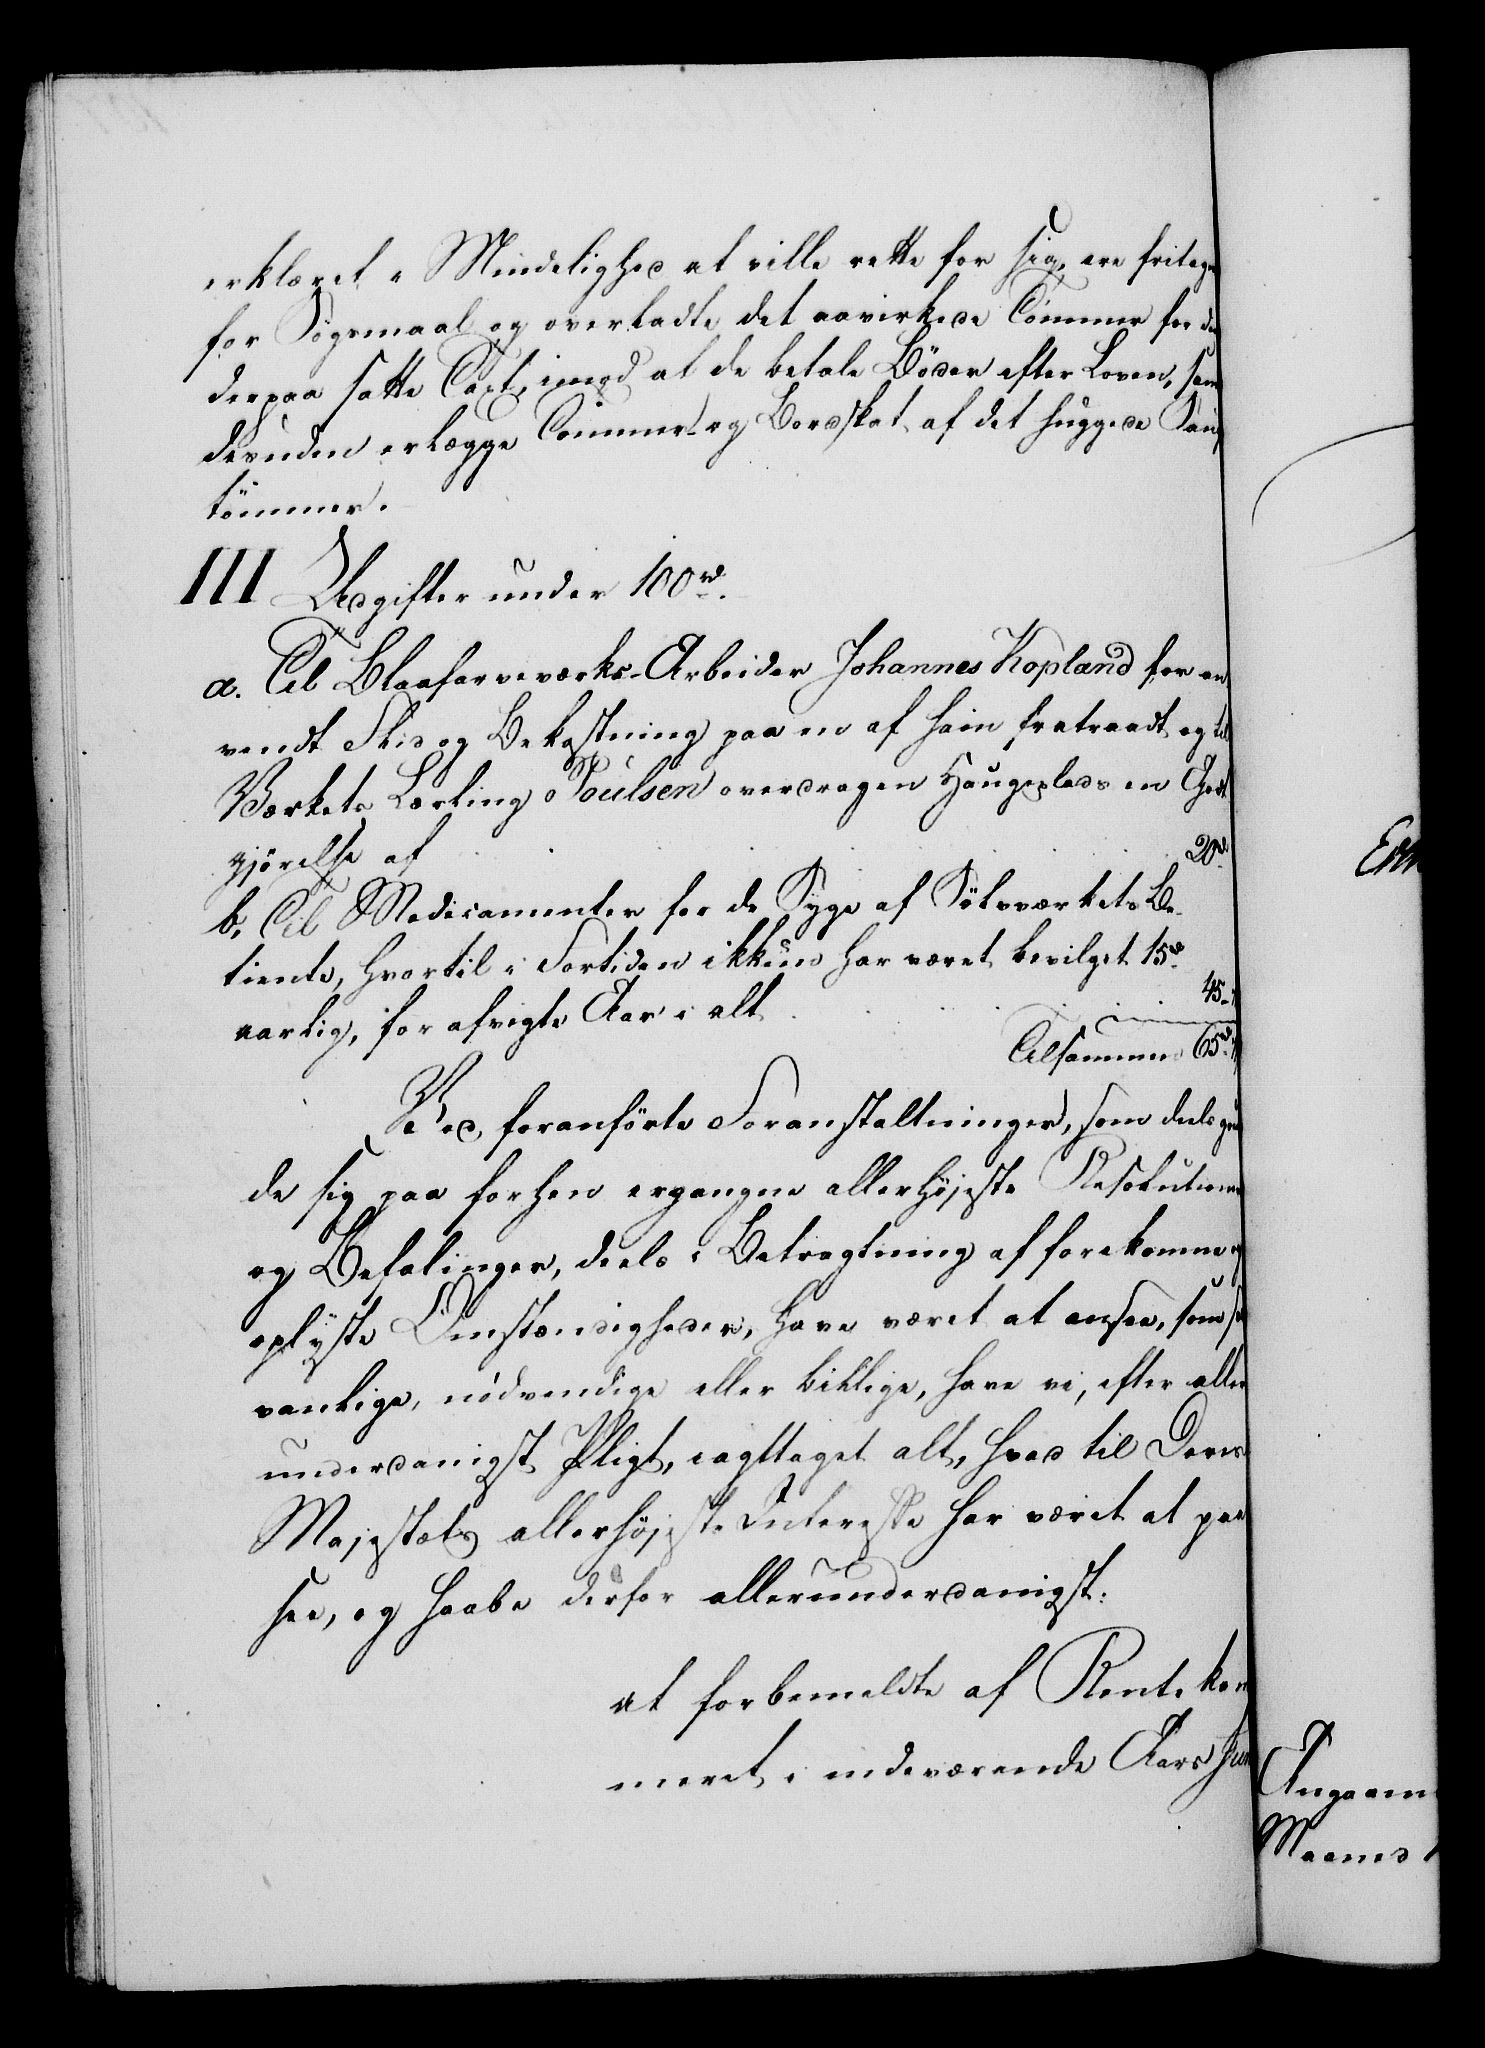 erklæret i Mindelighed at ville rette for sig, ere fritagne
for Søgsmaal og overladte det aavirkede Tømmer for den
derpaa satte Taxt, imod at de betale Bøder efter Loven, samt
desuden erlægge Tømmer- og Bordskat af det huggede Saug
tømmer.
III Udgifter under 100 rd.
a. Til Blaafarveværks-Arbeider Johannes Kopland for an
vendt Flid og Bekostning paa en af ham fratraadt og til
Værkets Lærling Poulsen overdragen Haugeplads en Godt
gjørelse af . . . . . 20 rd.
b. Til Medicamenter for de Syge af Sølvværkets Be-
tiente, hvortil i Fortiden ikkun har været bevilget 15 rd.
aarlig, for afvigte Aar i alt . . . . 45 -
Tilsammen 65 rd.
Ved foranførte Foranstaltninger, som deels
de sig paa forhen ergangne allerhøjeste Resolutioner
og Befalinger, deels i Betragtning af forekomne og
oplyste Omstændigheder, have været at ansee, som
vanlige, nødvendige eller billige, have vi, efter aller
underdanigst Pligt, iagttaget alt, hvad til Deres
Majestæts allerhøjeste Interesse har været at paa
see, og haabe derfor allerunderdanigst:
at forbemeldte af Rentekam
meret i indeværende Aars
Angaaen